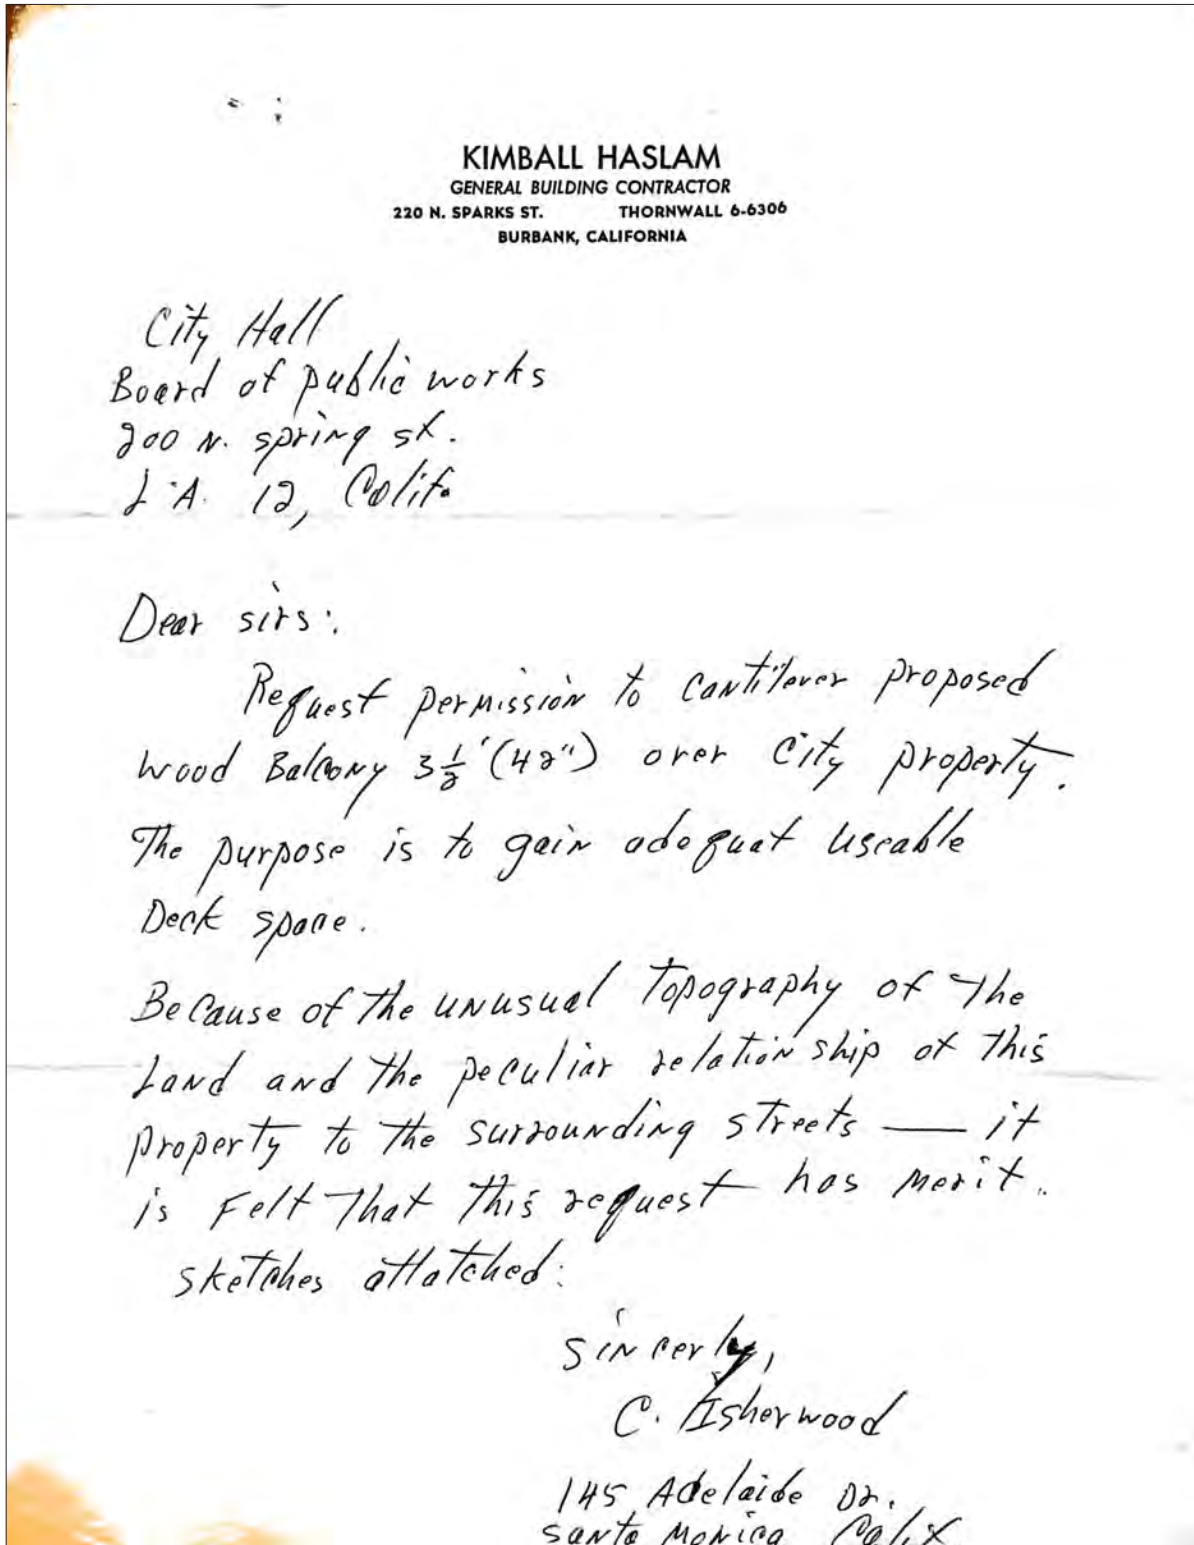 KIMBALL HASLAM
GENERAL BUILDING CONTRACTOR
220 N. SPARKS ST. THORNWALL 6-6306
BURBANK, CALIFORNIA
City Hall
Board of public works
200 N. spring st.
L.A. 12, Calif.
Dear sirs:
Request permission to cantilever proposed
wood Balcony 3 1/2' (42") over City property.
The purpose is to gain adequat useable
Deck space.
Because of the unusual Topography of the
Land and the peculiar relationship of this
property to the surrounding streets — it
is Felt That this request has merit.
sketches attatched:
sincerly,
C. Isherwood
145 Adelaide Dr.
santa Monica, Calif